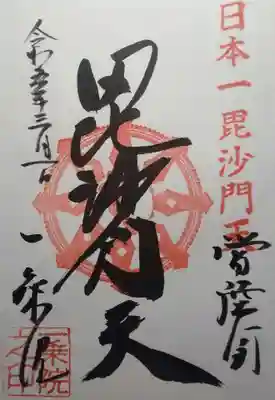 日本一毘沙門
毘沙門天
令和五年三月一日
一乗院
一乗院
之印